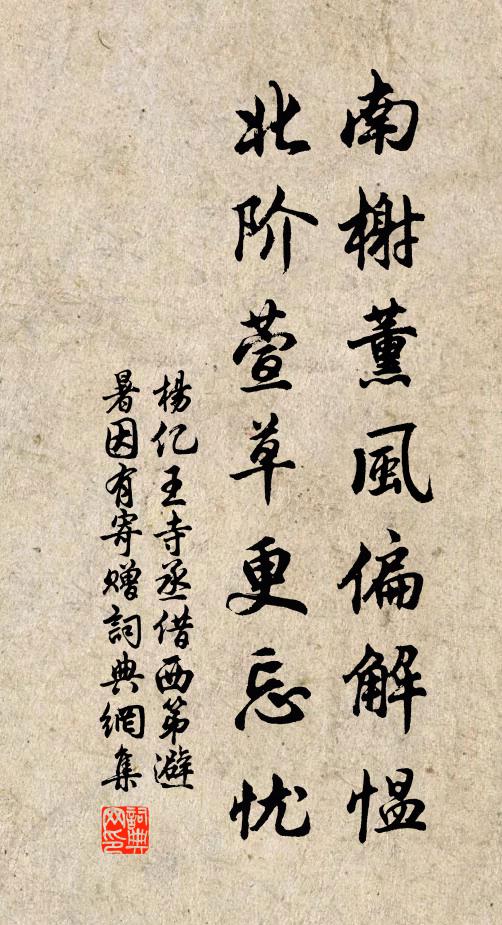 南榭薰風偏解愠
北阶萱草更忘忧
楊亿王寺丞借西第避
暑因有寄赠詞典網集
詞典
网印